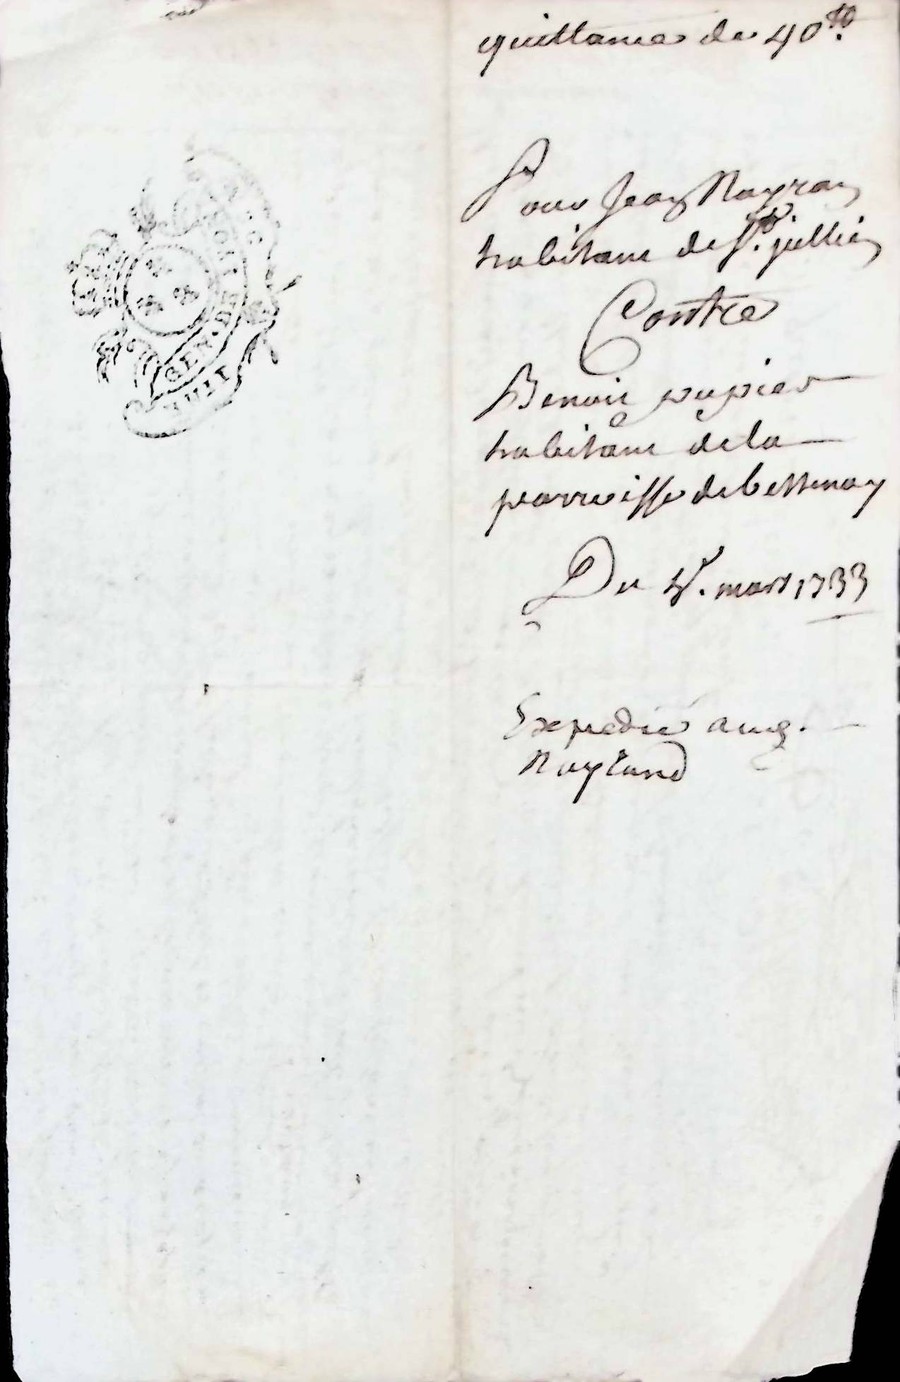 quittance de 40 tt.
Pour Jean Nayran
habitant de St. jullien
Contre
Benoit pupier
habitant de la
parroisse de bessenay
Du mars 1733
Expedié aud.
GEN. DE
HUIT